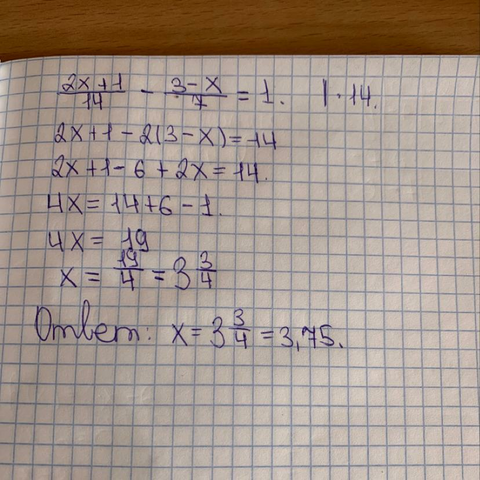 (2x+1)/14 - (3-x)/7 = 1. | · 14.
2x+1-2(3-x)=14
2x+1-6+2x=14.
4x=14+6-1.
4x=19
x=19/4=3 3/4
Ответ: x=3 3/4=3,75.